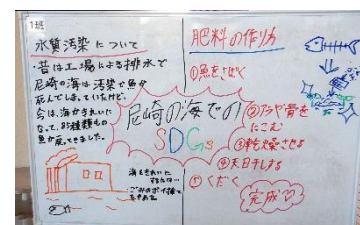 1班
水質汚染について
・昔は工場による排水で
尼崎の海は汚染で魚が
死んでしまっていたけど、
今は、海がきれいに
なって、85種類もの
魚が戻ってきました。
海をきれいに
するために…
・ごみのポイ捨て
をやめる
尼崎の海での
SDGs
肥料の作り方
①魚をさばく
②アラや骨を
にこむ
③乾燥させる
④天日干しする
⑤くだく
完成♡